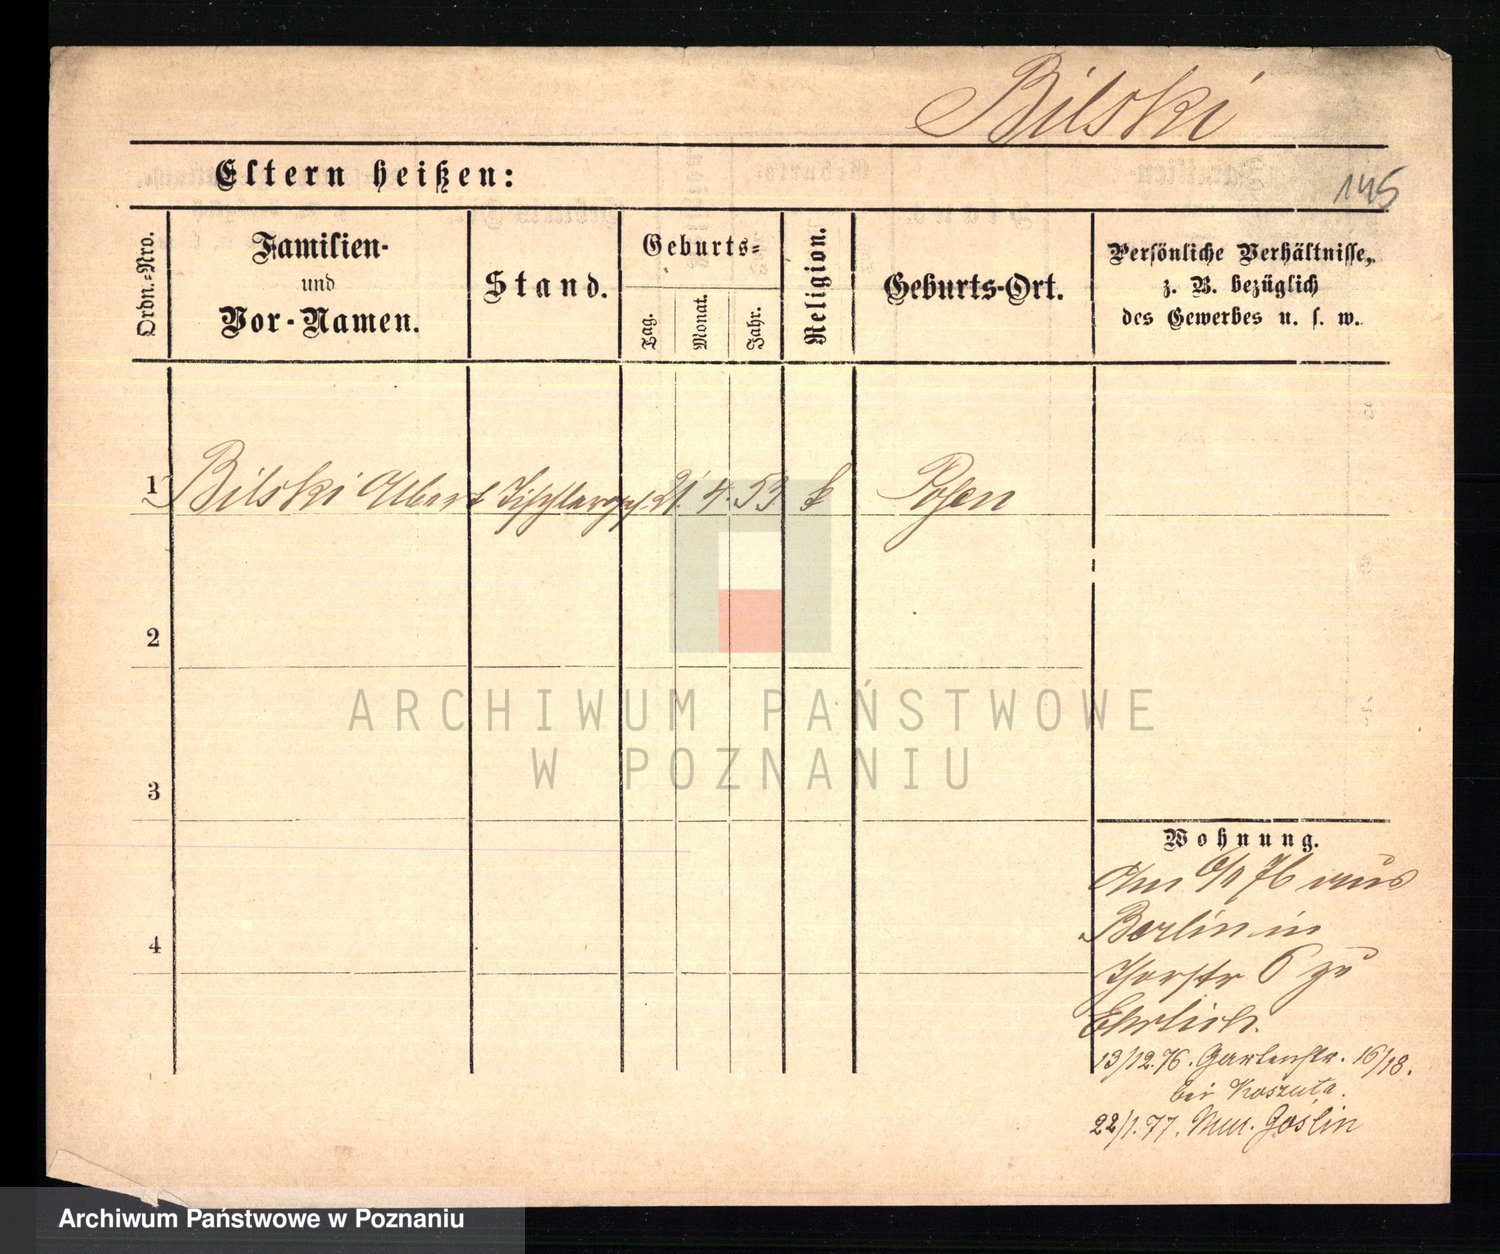 Bilski
145
Eltern heißen:
Ordn.-Nro.
Familien-
und
Vor-Namen.
Stand.
Geburts-
Tag.
Monat.
Jahr.
Religion.
Geburts-Ort.
Persönliche Verhältnisse,
z. B. bezüglich
des Gewerbes u. s. w.
1 Bilski Albert Tischlerges. 21. 4. 53 k Posen
2
3
4
Wohnung.
Am 6/1 76 aus
Berlin in
Thorstr 6 zu
Ehrlich.
13/12.76. Gartenstr. 16/18.
bei Koszuta.
22/1.77. Mur. Goslin
ARCHIWUM PAŃSTWOWE
W POZNANIU
Archiwum Państwowe w Poznaniu